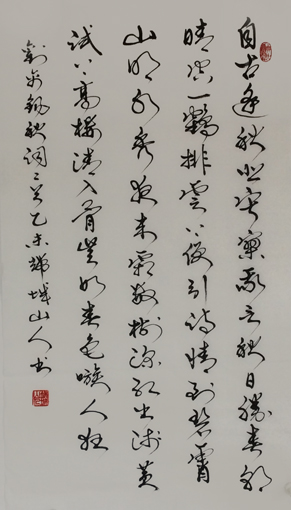 自古逢秋悲寂寥我言秋日勝春朝
晴空一鶴排雲上便引詩情到碧霄
山明水净夜来霜數樹深红出浅黄
試上高樓清入骨豈如春色嗾人狂
劉禹錫秋詞二首乙未城山人书